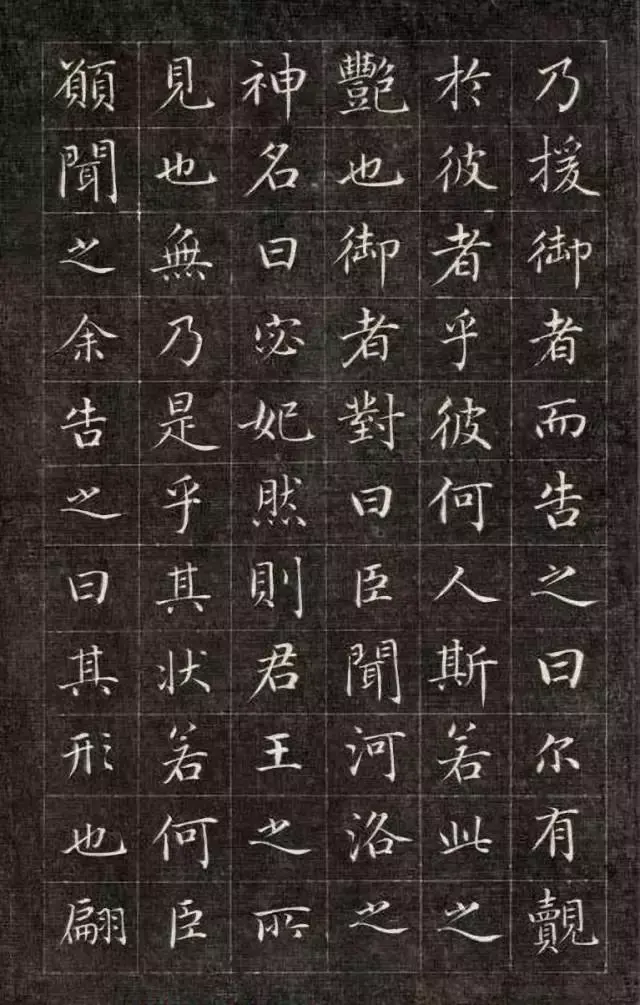 乃援御者而告之曰尔有覿
於彼者乎彼何人斯若此之
艷也御者對曰臣聞河洛之
神名曰宓妃然則君王之所
見也無乃是乎其狀若何臣
願聞之余告之曰其形也翩